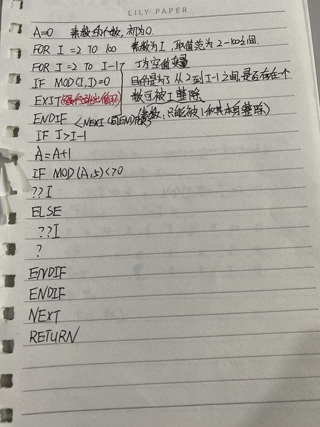 LILY PAPER
A=0 素数的个数,初为0.
FOR I=2 TO 100 素数为I,取值范为2-100之间
FOR J=2 TO I-1 J为空值变量
IF MOD(I,J)=0 目的是为了从2到I-1之间,是否存在一个
EXIT 数可被I整除
ENDIF <NEXT 素数:只能被1和其本身整除)
IF J>I-1
A=A+1
IF MOD(A,5)<>0
??I
ELSE
??I
?
ENDIF
ENDIF
NEXT
RETURN